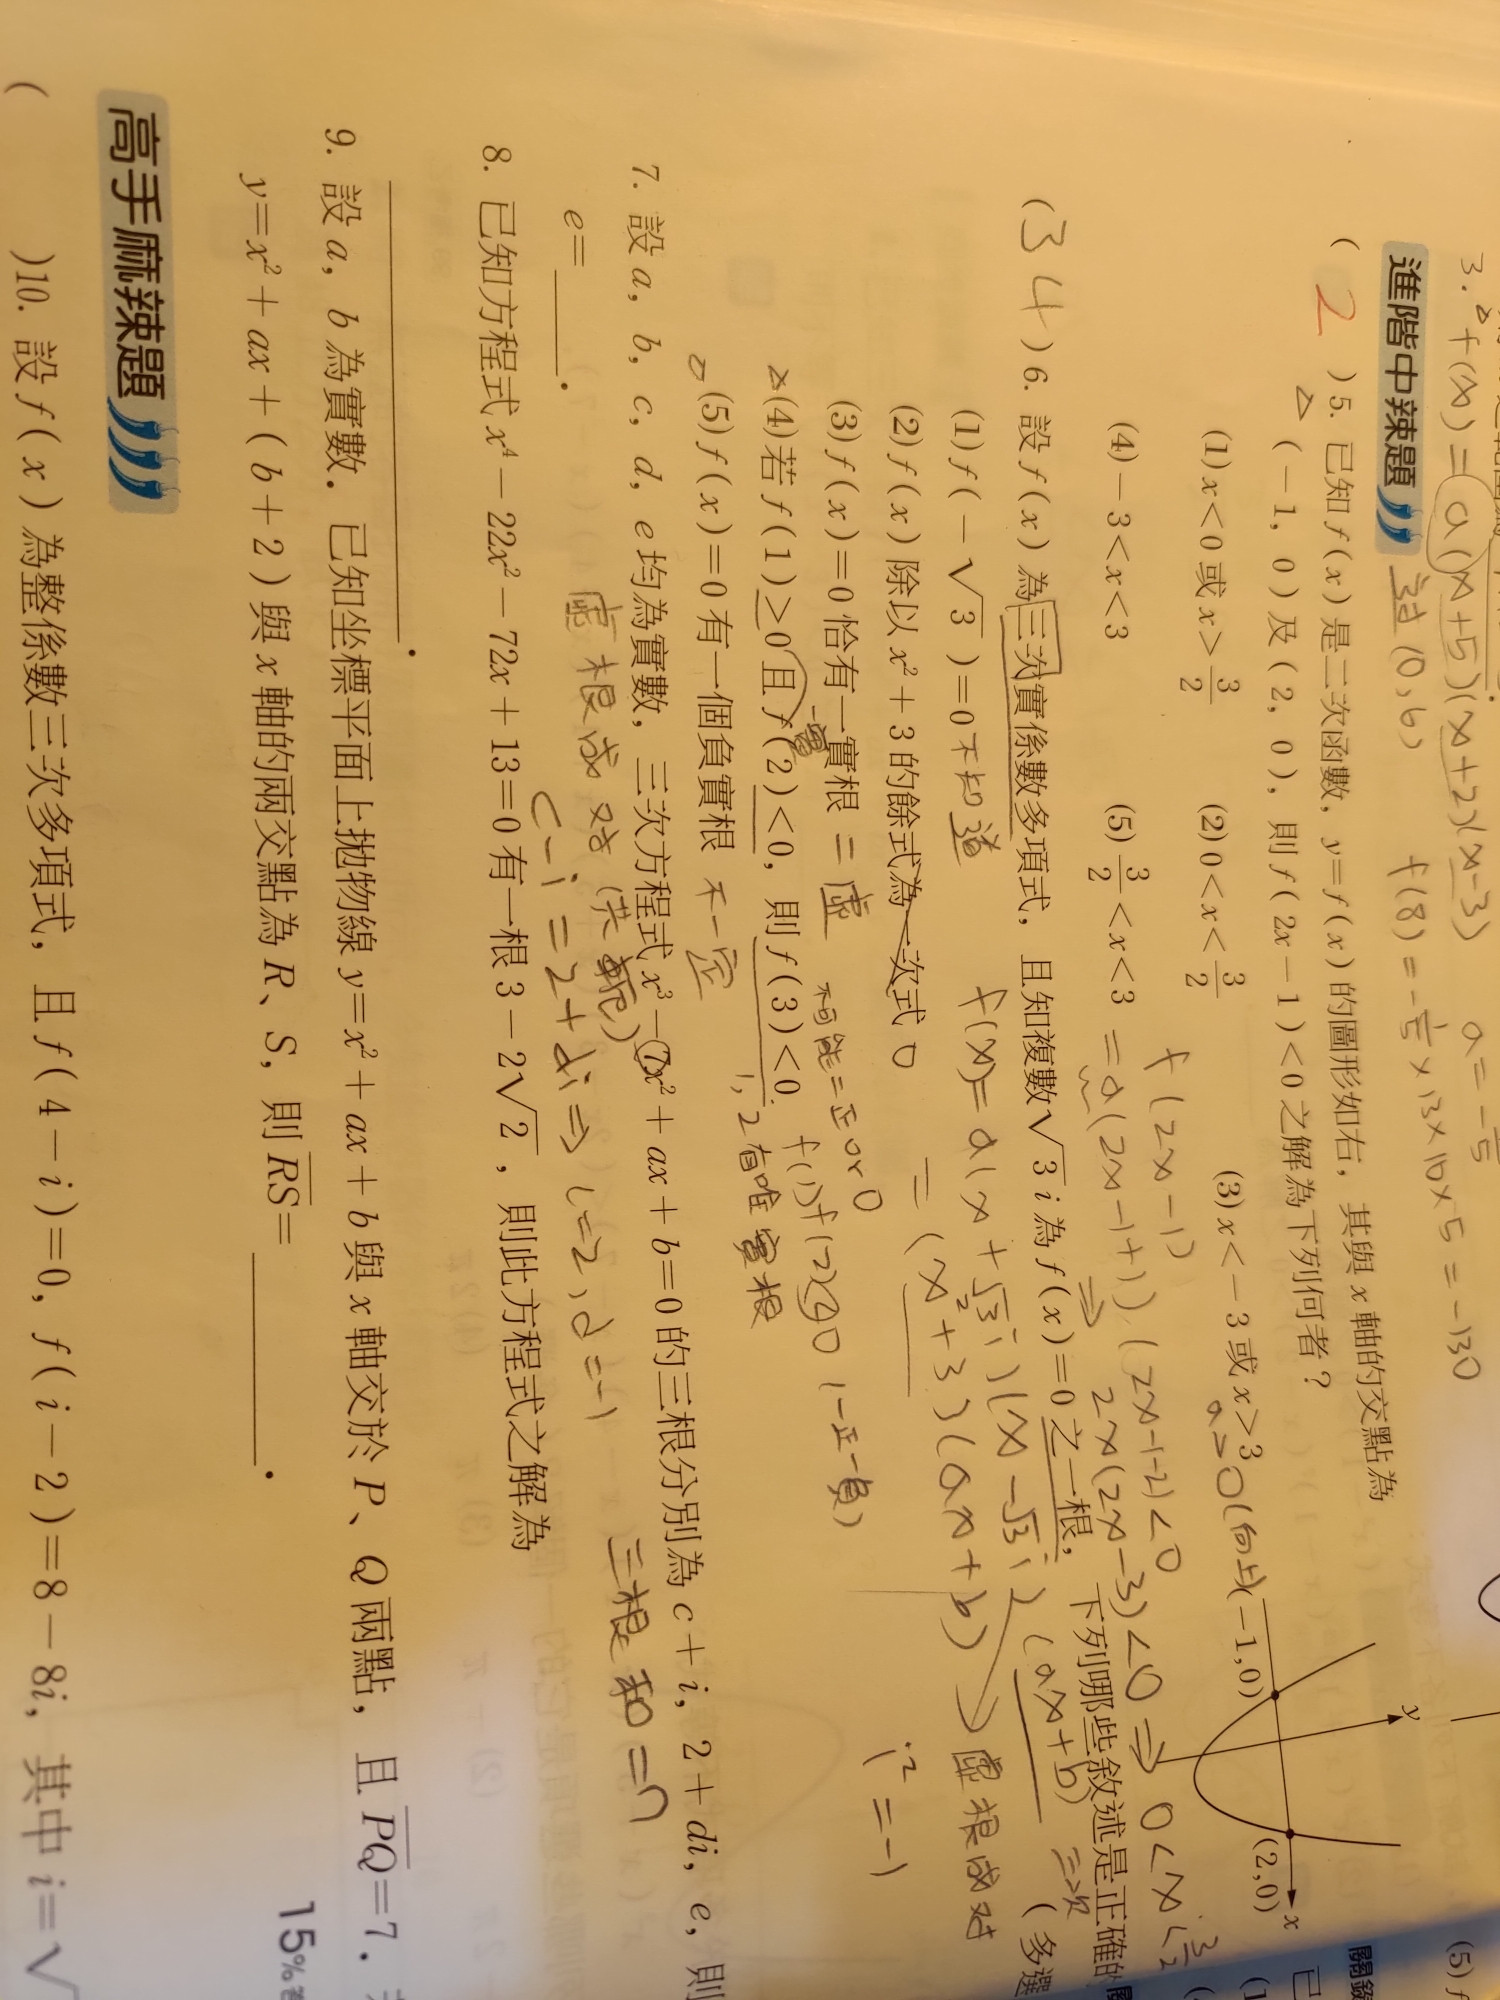 3. △ f(x)=a(x+5)(x+2)(x-3) a=-1/5
進階中辣題 過(0,6) f(8)=-1/5×13×10×5=-130
( 2 )5. 已知 f(x)是二次函數，y=f(x)的圖形如右，其與 x 軸的交點為
△ (-1, 0)及(2, 0)，則 f(2x-1)<0 之解為下列何者？
(1) x<0 或 x>3/2 (2) 0<x<3/2 (3) x<-3 或 x>3
(4) -3<x<3 (5) 3/2<x<3
a>0(向上)
y
x
(-1,0)
(2,0)
f(2x-1)
=a(2x-1+1)(2x-1-2)<0
⇒ 2x(2x-3)<0 ⇒ 0<x<3/2
(34)6. 設 f(x)為三次實係數多項式，且知複數√3 i 為 f(x)=0 之一根，下列哪些敘述是正確的 (多選
三次
(1) f(-√3)=0 不知道
f(x)=a(x+√3i)(x-√3i)(ax+b)
(2) f(x)除以 x²+3 的餘式為一次式 0
=(x²+3)(ax+b) 虛根成對
(3) f(x)=0 恰有一實根 一實 = 虛
i²=-1
△(4)若 f(1)>0 且 f(2)<0，則 f(3)<0
不可能=正or0
f(1)f(2)<0 (一正一負)
1, 2有唯實根
(5) f(x)=0 有一個負實根 不一定
7. 設 a，b，c，d，e 均為實數，三次方程式 x³-7x²+ax+b=0 的三根分別為 c+i，2+di，e，則
e=______.
虛根成对(共軛) 三根和=7
c-i=2+di⇒c=2, d=-1
8. 已知方程式 x⁴-22x²-72x+13=0 有一根 3-2√2，則此方程式之解為
______.
9. 設 a，b 為實數．已知坐標平面上拋物線 y=x²+ax+b 與 x 軸交於 P、Q 兩點，且 PQ=7．
y=x²+ax+(b+2)與 x 軸的兩交點為 R、S，則 RS=______.
15%
高手麻辣題
( )10. 設 f(x)為整係數三次多項式，且 f(4-i)=0，f(i-2)=8-8i，其中 i=√